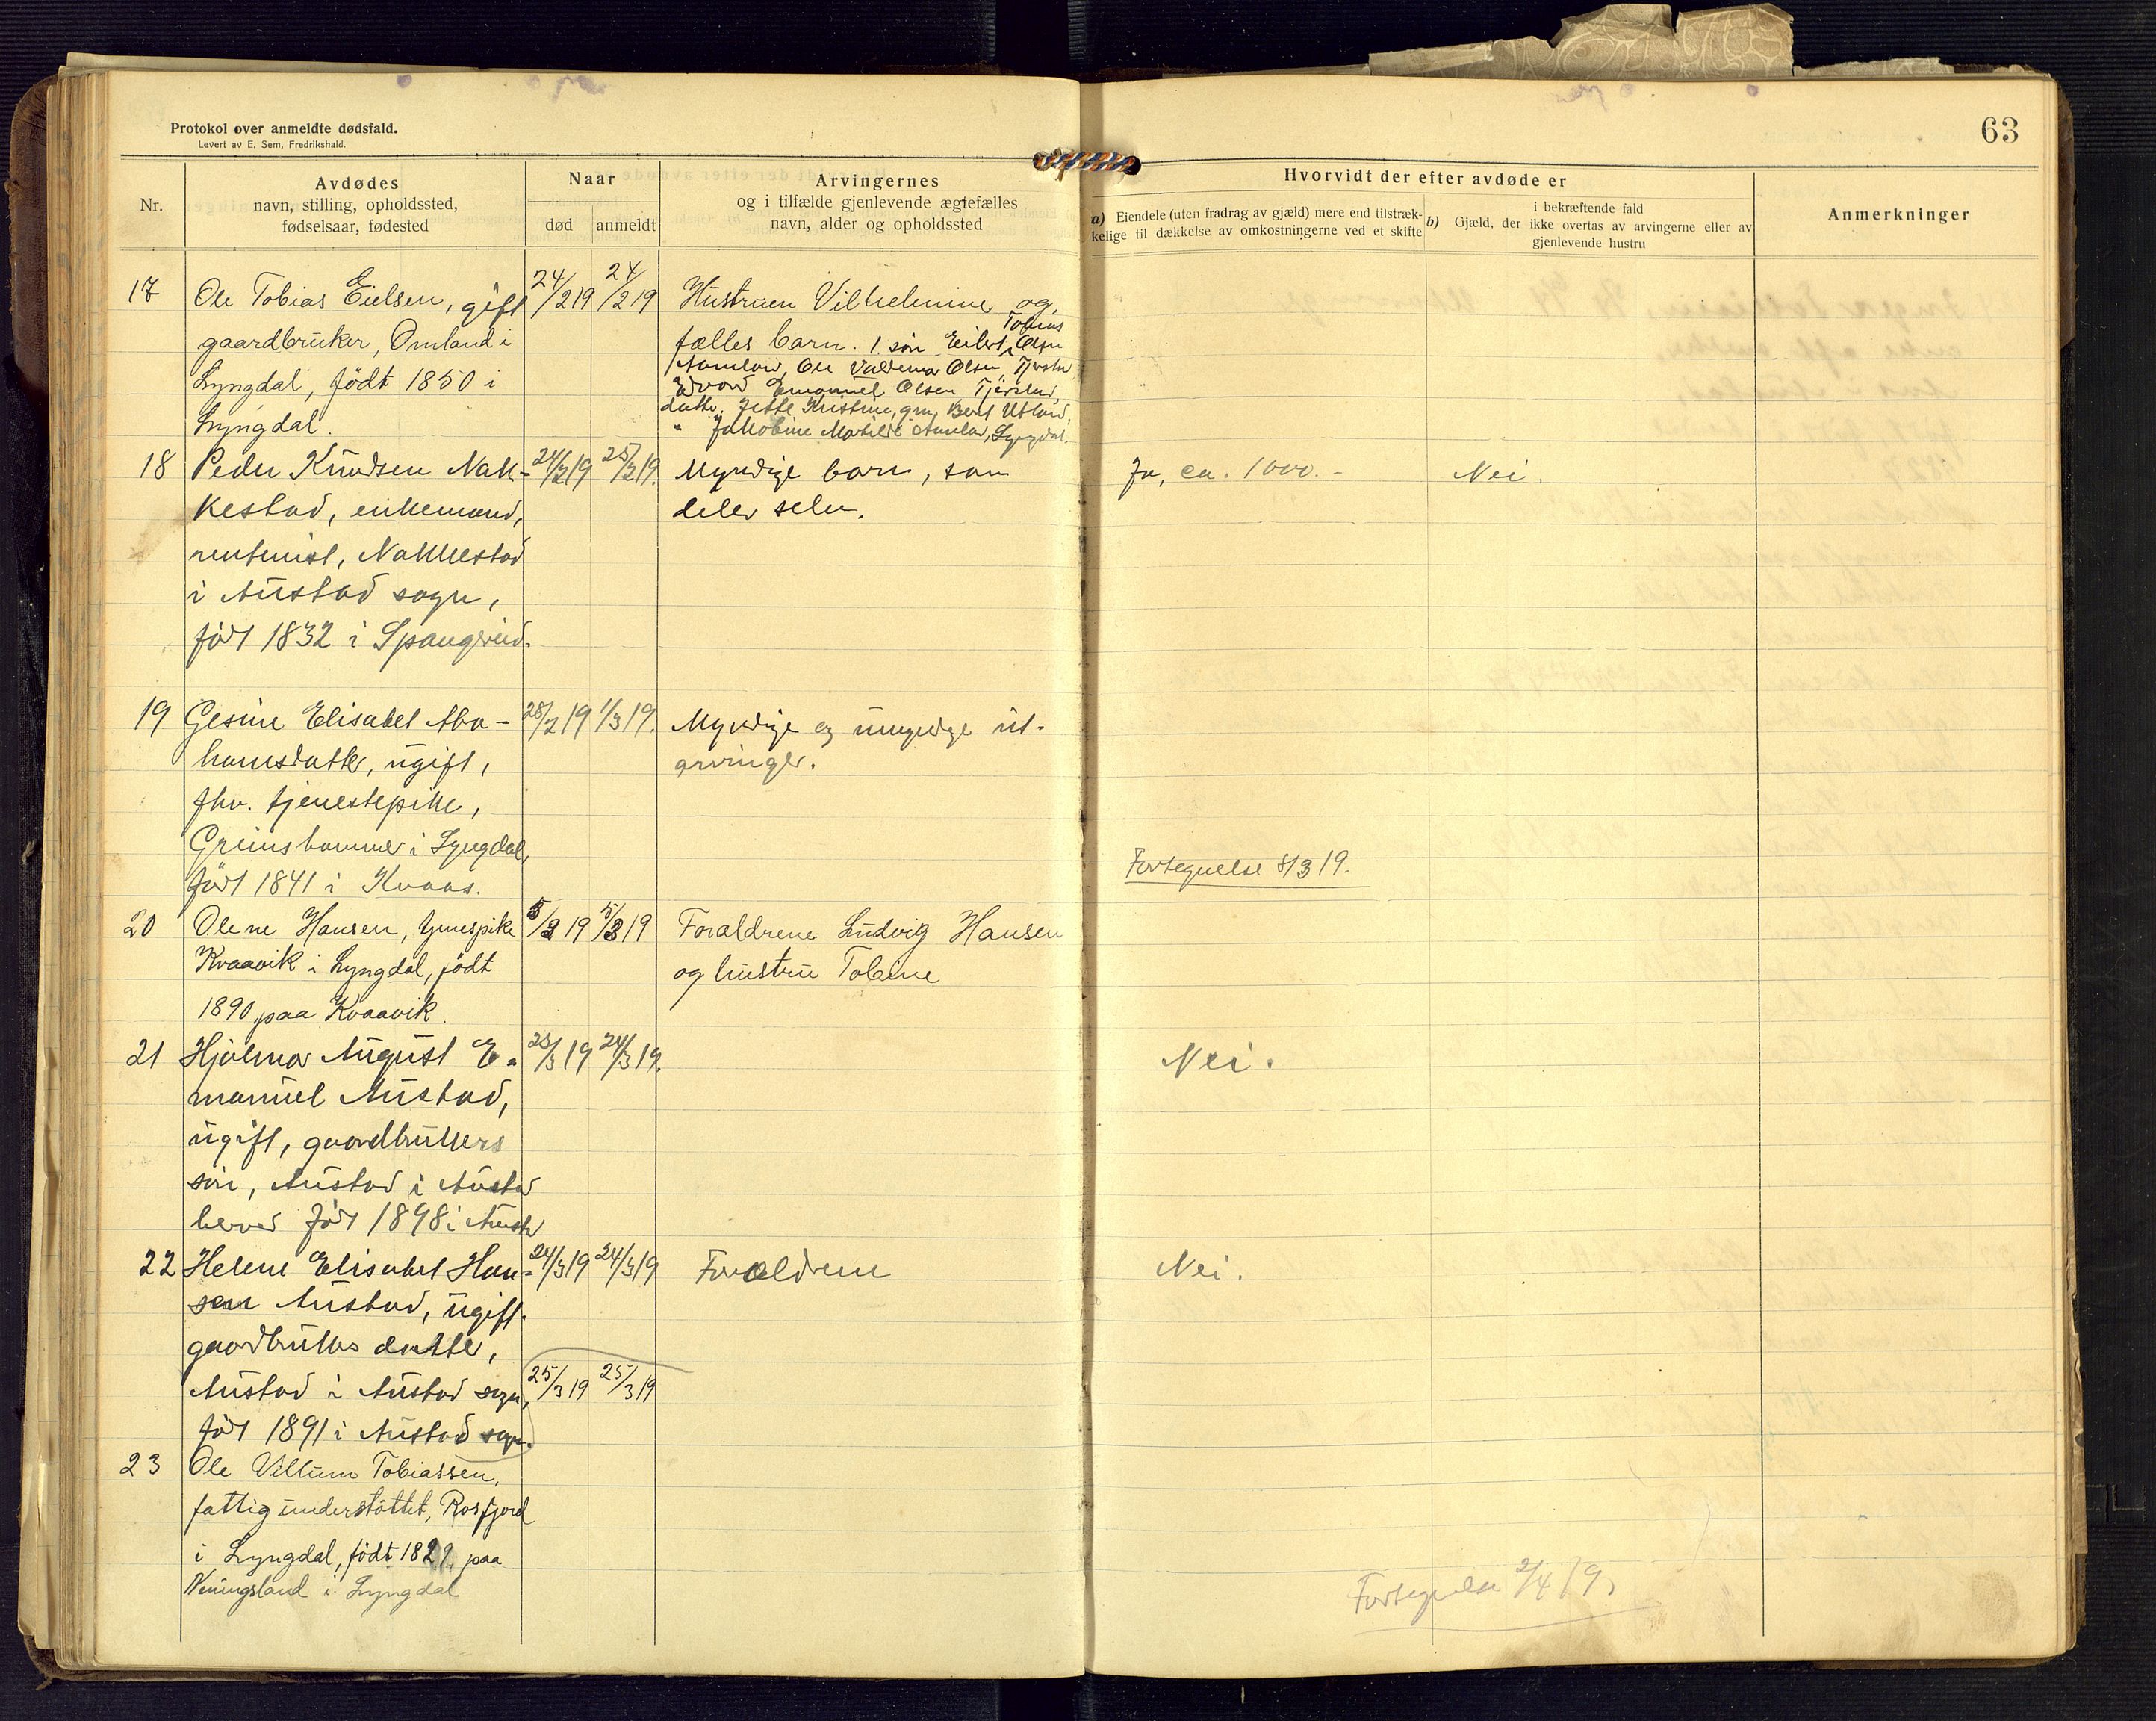 Protokol over anmeldte dødsfald.
Levert av E. Sem, Fredrikshald.
63
Nr.
Avdødes
navn, stilling, opholdssted,
fødselsaar, fødested
Naar
død
anmeldt
Arvingernes
og i tilfælde gjenlevende ægtefælles
navn, alder og opholdssted
Hvorvidt der efter avdøde er
a) Eiendele (uten fradrag av gjæld) mere end tilstræk-
kelige til dækkelse av omkostningerne ved et skifte
b) Gjæld, der
i bekræftende fald
ikke overtas av arvingerne eller av
gjenlevende hustru
Anmerkninger
17 Ole Tobias Eielsen, gift
gaardbruker, Omland i
Lyngdal, født 1850 i
Lyngdal.
24/2 19 24/2 19
Hustruen Vilhelmine og
fælles barn. 1 søn Eilert Tobias Olsen
Ole Valdemar Olsen
Edvard Emanuel Olsen Tjørsland,
datter Jette Kristine, gm. Berl Utland,
" Jakobine Matilde Lyngdal.
18 Peder Knudsen Nak-
kestad, enkemand,
rentenist, Nakkestad
i Austad sogn,
født 1832 i Spangereid.
24/2 19 25/2 19.
Myndige barn, som
deler selv.
Ja, ca. 1000.-
Nei.
19 Gesine Elisabet Abra-
hamsdatter, ugift,
fhv. tjenestepike,
i Lyngdal,
født 1841 i Kvaas.
28/2 19 1/3 19.
Myndige og umyndige ut-
arvinger.
Fortegnelse 8/3 19.
20 Olene Hansen, tjenespike
Kvaavik i Lyngdal, født
1890 paa Kvaavik.
5/3 19 5/3 19
Forældrene Ludvig Hansen
og hustru Tobine
21 Hjalmar August E-
manuel Austad,
ugift, gaardbrukers
søn, Austad i Austad
herred født 1898 i Austad
23/3 19 24/3 19.
Nei.
22 Helene Elisabet Han-
sen Austad, ugift.
gaardbrukers datter,
Austad i Austad sogn,
født 1891 i Austad sogn.
24/3 19 24/3 19
Forældrene
Nei.
25/3 19 25/3 19
23 Ole Villum Tobiassen,
fattigunderstøttet, Rosfjord
i Lyngdal, født 1829 paa
i Lyngdal
Fortegnelse 2/4 19.